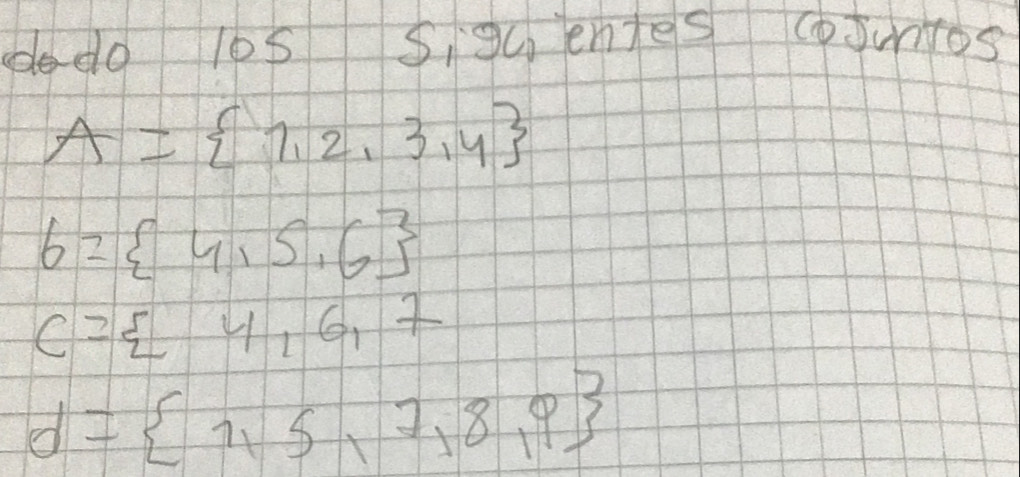 dado los siguientes cojuntos
A = { 1, 2, 3, 4 }
b = { 4, 5, 6 }
c = { 4, 6, 7
d = { 1, 5, 7, 8, 9 }